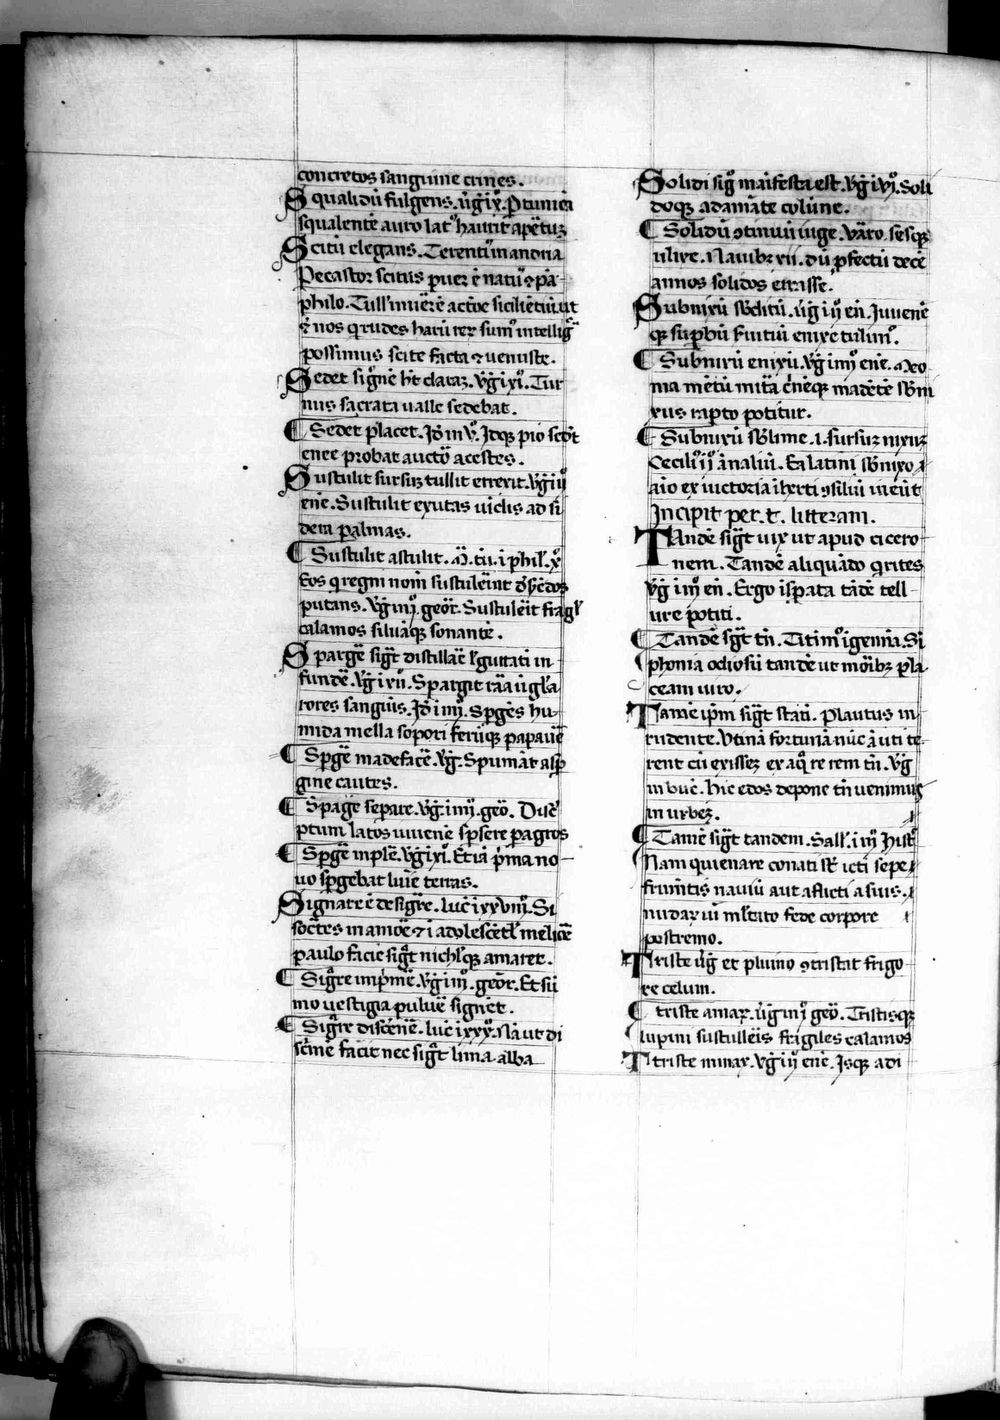 concretos sanguine crines.
Squalidũ fulgens. ũg̃ ix. P tunicã
squalentẽ auro lat᷒ haurit apẽtuʒ
Scitũ elegans. Terentiᷤ in andria
Pecastor scitus puer ẽ natũ ⁊ pã
philo. Tull᷒ in
⁊ nos q̃ rudes harũ reʒ sum᷒ intelligẽ
possimus scite facta ⁊ venuste.
Sedet
nus sacrata ualle sedebat.
¶ Sedet placet. Id̃ in v͂. Idqꝫ pio sedet
enee probat auctõ acestes.
Sustulit sursuʒ tullit erexit. Vg̃ i ij͂
enẽ. Sustulit exutas uiclis ad si
dera palmas.
¶ Sustulit astulit. M̃. tũ. i phil᷒. x͂
Eos q̃ regni nom̃ sustulẽint
putans. Vg̃ iiij͂. geõr. Sustulẽit fragl᷒
calamos siluãqꝫ sonantẽ.
Spargẽ sig̃t distillãe l᷒ guttati in
fundẽ. Vg̃ i xij͂. Spargit rãa ũgl᷒a
rores sanguis. Id̃ i iiij͂. Spg̃ẽs hu
mida mella soporiferũqꝫ papauẽ
¶ Spg̃ẽ madefacẽ. Vg̃. Spumãt asp̃
gine cautes.
¶ Spãgẽ separe. Vg̃. i iiij͂. geõ.
ptum latos iuuene spsere p agros
¶ Spg̃ẽ implẽ. Vg̃ i xi͂. Et iã p̃ma no
uo spg̃ebat luĩe terras.
Signare ẽ desig̃re. luc̃ i xxviij͂. Si
socr̃tes in amoẽ ⁊ i adolescẽtl᷒ melicẽ
paulo facie sig̃t nichl᷒qꝫ amaret.
¶ Sig̃re imp̃mẽ. Vg̃ i iij͂. geõr. Et sũ
mo uestigia puluẽ signẽt.
¶ Sig̃re discẽnẽ. luc̃ i xxx͂. Nã ut di
scĩnẽ facit nec sig̃t lima alba
Solidi sig᷒ mãifesta est. Vg̃ i vi͂. Soli
doqꝫ adamãte colũne.
¶ Solidũ ꝯtinuũ iuge. Vãro. sesqꝫ
ulixe. Nauibʒ xij. dũ pfectũ decẽ
annos solidos errasse.
Subnixũ sbditũ. ũg̃ i iij͂ en̄. Iuuenẽ
qꝫ supbũ enixe tulim᷒.
¶ Subnixũ enixũ. Vg̃ i iiij͂ enẽ. Meo
nia mẽtũ mit̃a c̃nẽqꝫ madẽtẽ sbni
xus rapto potitur.
¶ Subnixũ sblime. i. sursuʒ nixuʒ
Cecili᷒ ij͂ ãnaliũ. Ea latini sbnixo
aĩo ex uictoria iherti ꝯsiliũ inẽũt
Incipit per. t. litteram.
Tandẽ sig̃t uix ut apud cicero
nem. Tandẽ aliquãdo q̃rites
Vg̃ i iij͂ en̄. Ergo isperata tãdẽ tell
ure potiti.
¶ Tandẽ sg̃t tñ. Titini᷒ i gemia. Si
phonia odiosũ tandẽ ut morĩbʒ pla
ceam uiro.
Tamẽ ipm̃ sig̃t stati. Plautus in
rudente. Vtinã fortunã nũc ã uti te
rent cũ exissẽʒ ex aq̃ re rem tñ. Vg̃
in buc̃. hic edos depone tñ venimus
in urbeʒ.
¶ Tamẽ sig̃t tandem. Sall᷒. i iij͂ hist᷒
Nam qui enare conati sr̃t icti sepe
frum̃tis nauiũ aut aflicti a suis
mul᷒tato fede corpore
postremo.
Triste ũg̃ et pluuio ꝯtristat frigo
re celum.
¶ triste amaʒ. ũg̃ i iiij͂ geõ. Tristisqꝫ
lupini sustullẽis frãgiles calamos
Triste minax. Vg̃ i ij͂ enẽ. Isqꝫ adi